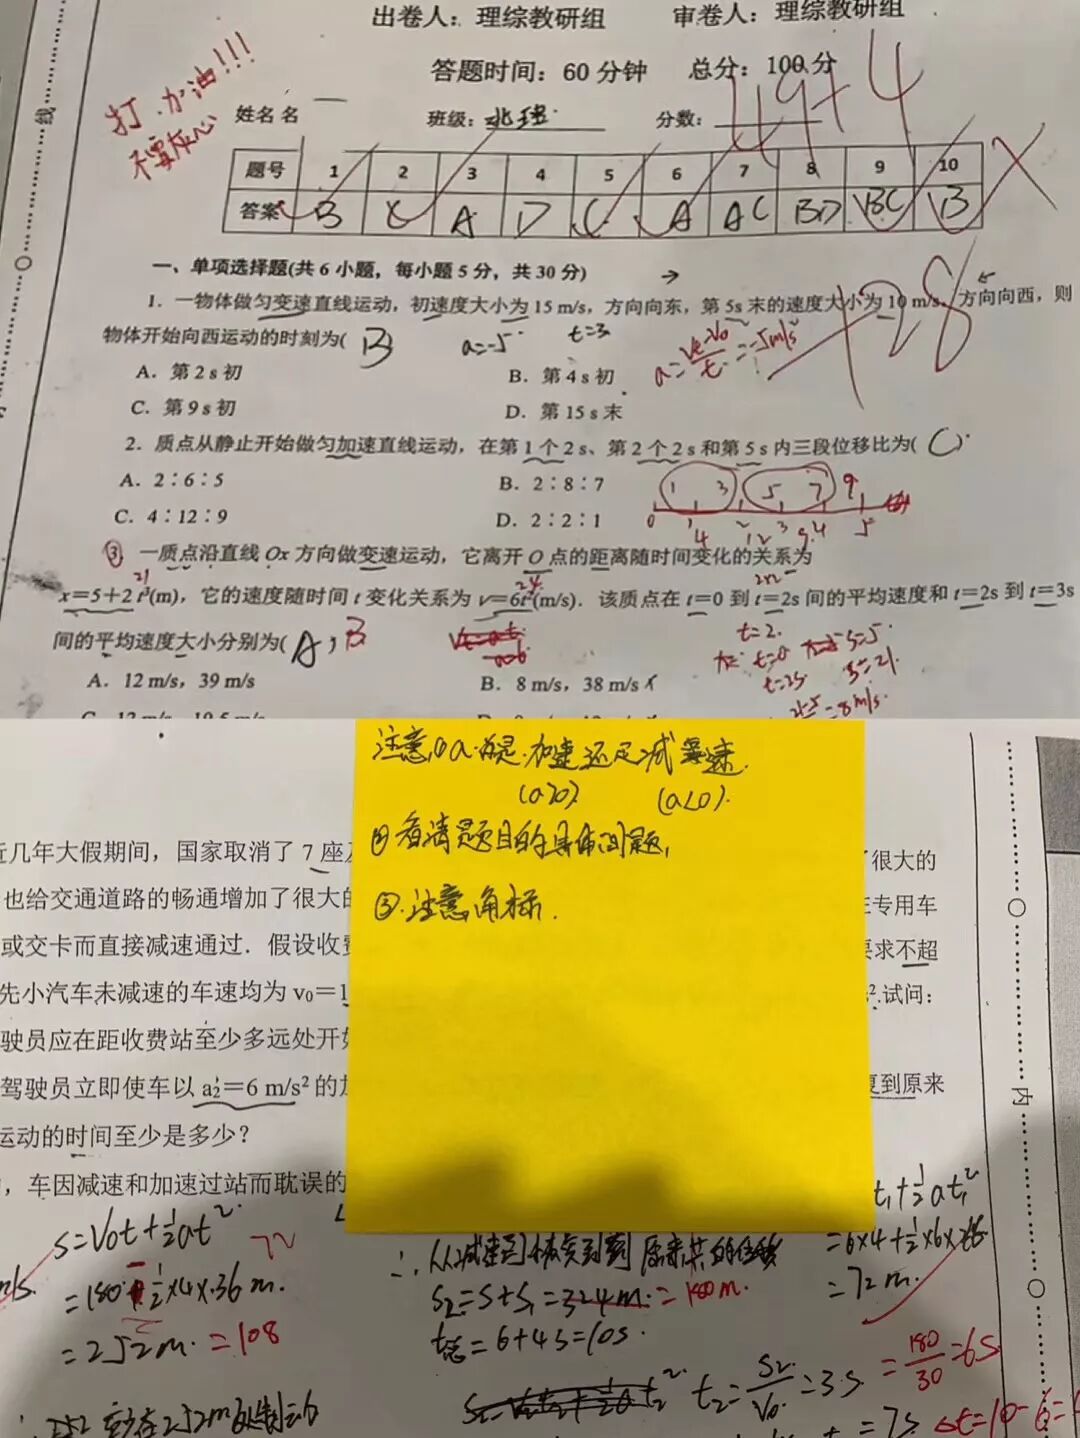 出卷人：理综教研组 审卷人：理综教研组
答题时间：60分钟 总分：100分
打.加油!!!
不要灰心
线
姓名 名 班级： 分数： 49+4
题号 1 2 3 4 5 6 7 8 9 10
答案 B C A D C A AC BD BC B
一、单项选择题(共6小题，每小题5分，共30分)
+28
1．一物体做匀变速直线运动，初速度大小为15 m/s，方向向东，第5s末的速度大小为10 m/s，方向向西，则
物体开始向西运动的时刻为( B
a=-5 t=3
A．第2 s初 B．第4 s初
C．第9 s初 D．第15 s末
2．质点从静止开始做匀加速直线运动，在第1个2 s、第2个2 s和第5 s内三段位移比为( C )
A．2∶6∶5 B．2∶8∶7
C．4∶12∶9 D．2∶2∶1
1 3 5 7 9
③ 一质点沿直线Ox方向做变速运动，它离开O点的距离随时间变化的关系为
x=5+2 t³(m)，它的速度随时间 t 变化关系为 v=6t²(m/s)．该质点在 t=0 到 t=2s 间的平均速度和 t=2s 到 t=3s
间的平均速度大小分别为( A , B
A．12 m/s，39 m/s B．8 m/s，38 m/s
t=2.
t=0 s=5.
t=2s s=21.
=8m/s.
注意,① a 为是.加速还是减速.
(a>0). (a<0).
② 看清题目的具体问题,
③.注意角标.
近几年大假期间，国家取消了7座
很大的
也给交通道路的畅通增加了很大的
专用车
或交卡而直接减速通过．假设收费
要求不超
先小汽车未减速的车速均为 v₀=
试问：
驶员应在距收费站至少多远处开始
驾驶员立即使车以 a₂=6 m/s² 的
复到原来
运动的时间至少是多少？
，车因减速和加速过站而耽误的
内
s=V₀t+½at².
=180+½×4×36 m.
=252m. =108
∴从减速到恢复到到原来共的位移
s₂=s+s₁=324m.=180m.
t总=6+4s=10s.
t₁+½at₁²
=6×4+½×6×
=72m.
t₂=S₂/V₀=3s
=180/30=6s
=7s Δt=10-6=